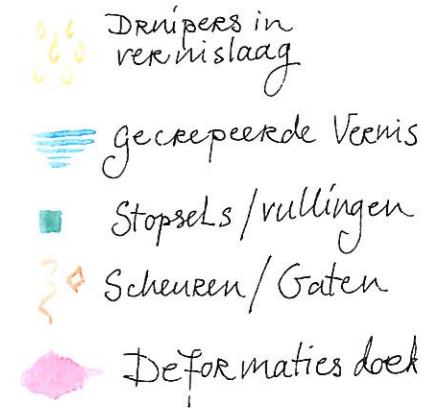 Druipers in
vernislaag
gecrepeerde Vernis
Stopsels/vullingen
Scheuren/Gaten
Deformaties doek